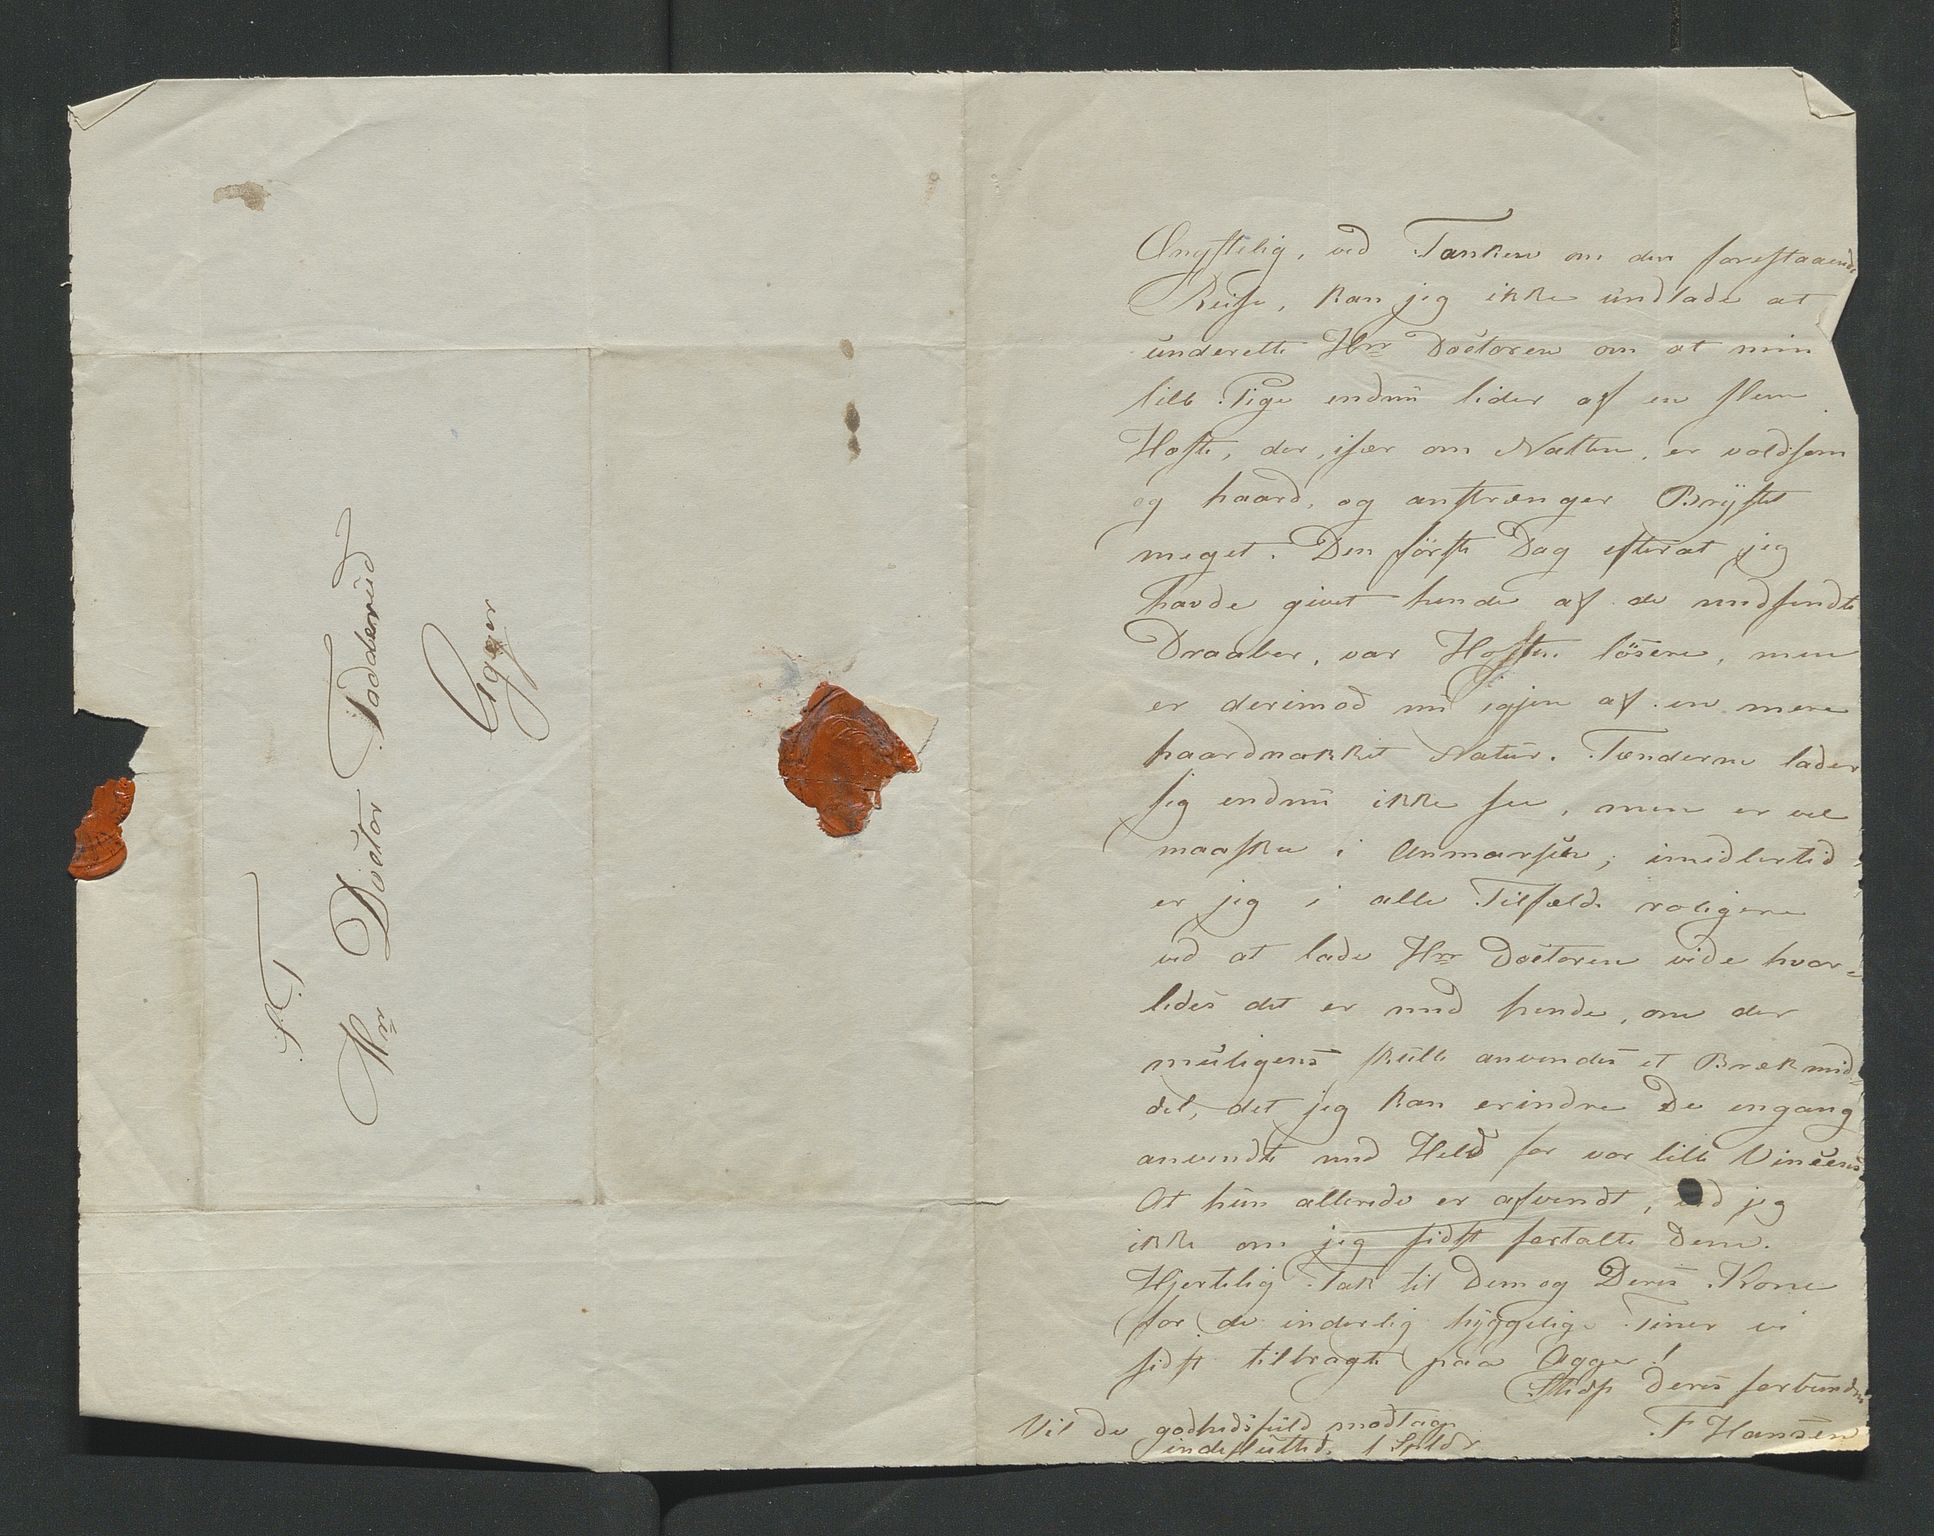 S. T.
Hrr Doctor Tadderud
Agger
Ængstelig, ved Tanken om den forestaaende
Reise, kan jeg ikke undlade at
underette Hrr Doctoren om at min
lille Pige endnu lider af en slem
Hoste, der, især om Natten, er voldsom
og haard, og anstrænger Brystet
meget. Den förste Dag efterat jeg
havde givet hende af de medsendte
Draaber, var Hosten lösere, men
er derimod nu igjen af en mere
haardnakket Natur. Tænderne lader
sig endnu ikke see, men er vel
maaskee i Anmarsch; imidlertid
er jeg i alle Tilfælde roligere
ved at lade Hrr Doctoren vide hvor-
ledes det er med hende, om der
muligens skulle anvendes et Brækmid-
del, det jeg kan erindre De engang
anvendte med Held for vor lille Vincens
At hun allerede er afvendt, ved jeg
ikke om jeg sidst fortalte Dem.
Hjertelig Tak til Dem og Deres Kone
for de inderlig hyggelige Timer vi
sidst tilbragte paa Agger!
Deres forbundne
F Hansen
Vil De godhedsfuld modtage
indesluttede 1 Spdlr